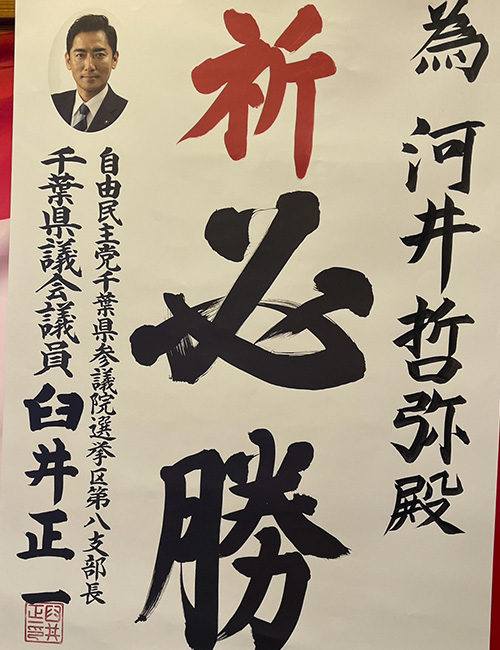 為 河井哲弥殿
祈必勝
自由民主党千葉県参議院選挙区第八支部長
千葉県議会議員 臼井正一
臼井正一印